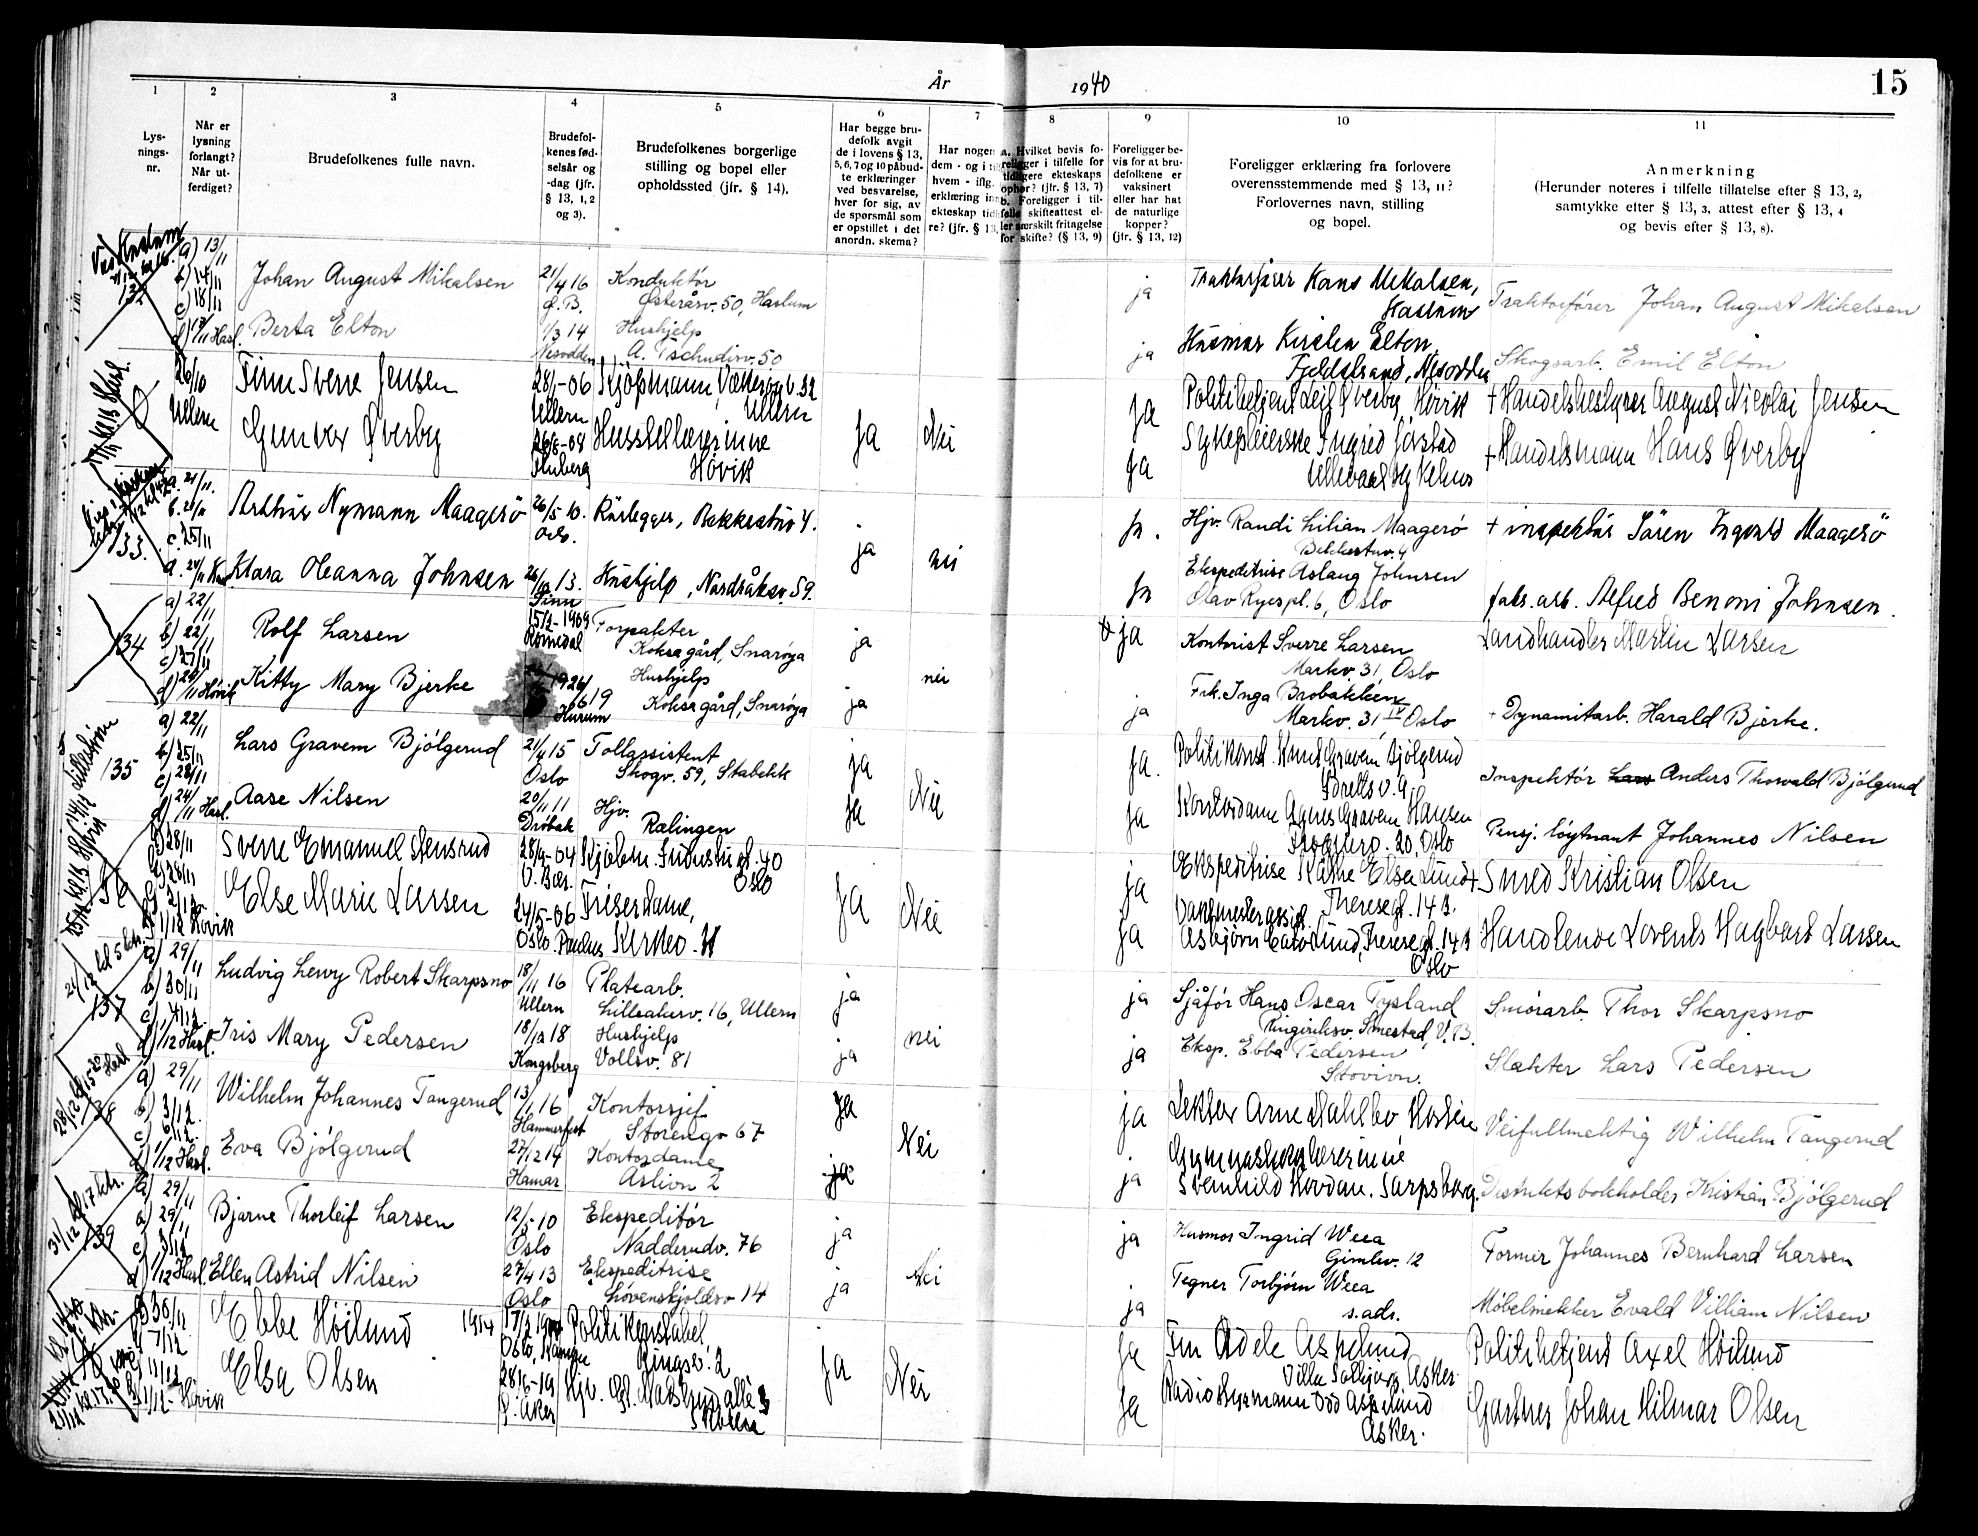 År 1940
15
1 2 3 4 5 6 7 8 9 10 11
Lys-
nings-
nr.
Når er
lysning
forlangt?
Når ut-
ferdiget?
Brudefolkenes fulle navn.
Brudefol-
kenes fød-
selsår og
-dag (jfr.
§ 13, 1, 2
og 3).
Brudefolkenes borgerlige
stilling og bopel eller
opholdssted (jfr. § 14).
Har begge bru-
defolk avgit
de i lovens § 13,
5, 6, 7 og 10 påbud-
te erklæringer
ved besvarelse,
hver for sig, av
de spørsmål som
er opstillet i det
anordn. skema?
Har nogen a
dem - og i til
hvem - iflg.
erklæring inn
ekteskap tidl
re? (jfr. § 13,
a. Hvilket bevis fo-
religger i tilfelle for
tidligere ekteskaps
ophør? (jfr. § 13, 7)
b. Foreligger i til-
felle skifteattest el-
ler særskilt fritagelse
for skifte? (§ 13, 9)
Foreligger be-
vis for at bru-
defolkene er
vaksinert
eller har hat
de naturlige
kopper?
(jfr. § 13, 12)
Foreligger erklæring fra forlovere
overensstemmende med § 13, 11?
Forlovernes navn, stilling
og bopel.
Anmerkning
(Herunder noteres i tilfelle tillatelse efter § 13, 2,
samtykke efter § 13, 3, attest efter § 13, 4
og bevis efter § 13, 8).
132
a) 13/11
b) 14/11
c) 18/11
Hasl.
Johan August Mikalsen
21/4 16
Ø.B.
Konduktör
Østeråsv. 50, Haslum
ja
Traktorfører Hans Mikalsen,
Haslum
Traktorfører Johan August Mikalsen
Berta Elton
1/3 14
Nesodden
Hushjelp
A. Tschudisv. 50
ja
Husmor Kirsten Elton
Fjeldstrand, Nesodden
Skogsarb. Emil Elton
26/10
Ullern
Finn Sverre Jensen
28/1-06
Ullern
Ullern
ja
Politibetjent Leif Øverby, Høvik
+ Handelsbestyrer August Nicolai Jensen
Gunvor Øverby
26/8-08
Husstellærerinne
Høvik
Ja
Nei
Ja
Sykepleierske Ingrid Jörstad
Ullevaal Sykehus
+ Handelsmann Hans Øverby
133.
a. 21/11.
c. 25/11
Arthur Nymann Maagerö
26/5 10.
Oslo.
Rörlegger, Bakkestuv 4.
ja
nei
ja.
Hjv. Randi Lilian Maagerö
Bakkestuv. 4
+ inspektör Sören Ingvald Maagerö
Klara Oleanna Johnsen
13.
Hushjelp, Nordråksv. 59.
ja
Ekspeditrise Aslaug Johnsen
Olav Ryespl. 6, Oslo
fabr. arb. Alfred Benoni Johnsen.
134
a) 22/11
b) 22/11
c) 27/11
Høvik
Rolf Larsen
15/2-1909
Romedal
Forpakter
Koksa gård, Snarøya
ja
nei
ja
Kontorist Sverre Larsen
Markv. 31, Oslo
Landhandler Martin Larsen
Kitty Mary Bjerke
19
Hurum
Hushjelp
Koksa gård, Snarøya
ja
ja
Frk. Inga Brobakken
Markv. 31 IV Oslo
+ Dynamitarb. Harald Bjerke.
135
a) 22/11
b) 25/11
c) 28/11
d) 24/11 Hasl.
Lars Gravem Bjölgerud
21/4 15
Oslo
Tollassistent
Skogv. 59, Stabekk
ja
Nei
ja.
Politikonst. Knut Gravem Bjölgerud
Inspektör Lars Anders Thorvald Bjölgerud
Aase Nilsen
20/11 11
Drøbak
Hjv.
Rælingen
ja
ja
Kontordame Agnes Gravem Hansen
20, Oslo
Pensj. löytnant Johannes Nilsen
136
28/11
28/11
1/12 Høvik
Sverre Emanuel Stensrud
28/9-04
V. Bær.
40
Oslo
Ja
Nei
ja
Ekspeditrise Käthe Elsa Lund
Theresegt. 14 B.
+ Smed Kristian Olsen
Else Marie Larsen
24/5-06
Oslo. Paulus
Friserdame,
Kirkev. 11
ja
Vaktmesterassist.
Asbjörn Cato Lund, Theresegt. 14 B
Oslo
Handlende Lorents Hagbart Larsen
137
a) 29/11
b) 30/11
c) 4/12
d) 1/12 Hasl.
Ludvig Lewy Robert Skarpsno
18/11 16
Ullern
Platearb.
Lilleakerv. 16, Ullern
ja
nei
ja
Sjåför Hans Oscar Tysland
Ringeriksv. Smestad, V.B.
Smörarb. Thor Skarpsno
Iris Mary Pedersen
18/12 18
Kongsberg
Hushjelp
Vollsv. 81
ja
ja
Eksp. Ebba Pedersen
Stovivn.
Slakter Lars Pedersen
138
a) 29/11
b) 3/12.
c) 6/12.
d) 1/12 Hasl.
Wilhelm Johannes Tangerud
13/1 16
Hammerfest
Kontorsjef
Storengv 67
ja
Nei
ja
Lektor Arne Dahlbo
Veifullmektig Wilhelm Tangerud
Eva Bjölgerud
27/12 14
Hamar
Kontordame
Aslivn 2
ja
ja
Gymnastikklærerinne
Svenhild Hovdan. Sarpsborg.
Distriktsbokholder Kristian Bjölgerud
139
31/12 kl. 17. ktr.
a) 29/11
b) 29/11
d) 1/12 Hasl.
Bjarne Thorleif Larsen
12/5-10
Oslo
Ekspeditör
Nadderudv. 76
ja
Nei
ja
Husmor Ingrid Weea
Gimlev. 12
Former Johannes Bernhard Larsen
Ellen Astrid Nilsen
27/4 13
Oslo
Ekspeditrise
Lövenskjoldsv 14
ja
ja
Tegner Torbjörn Weea
s. ads.
Møbelsnekker Evald Villiam Nilsen
30/11
7/12
11/12
Høvik
Ebbe Höilund
1914
17/2
Politikonstabel,
Ringsv. 2
Ja
Nei
ja
Fru Adele Aspelund
Villa Solbjørg Asker
Politibetjent Axel Höilund
Elsa Olsen
28/6-19
Ø. Aker
Hjv.
ja
Odd Aspelund
Asker.
Gartner Johan Hilmar Olsen